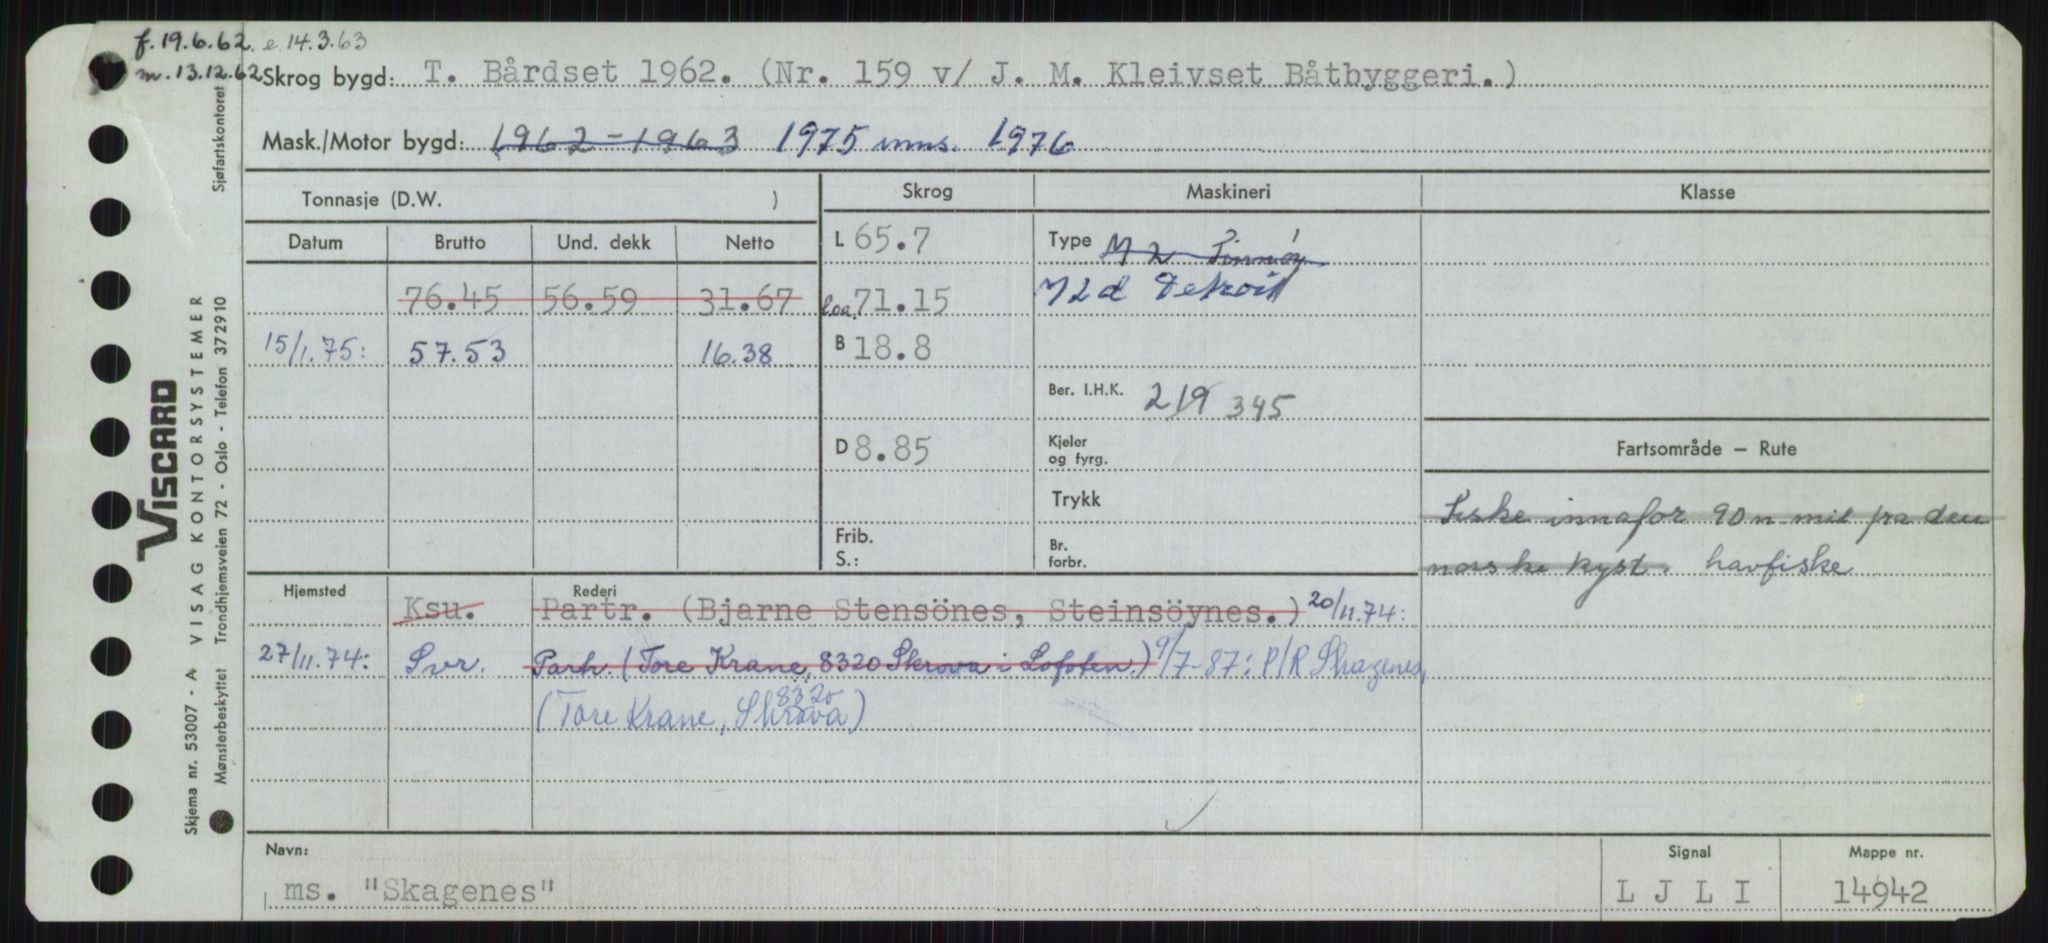 f. 19.6.62. e. 14.3.63
m. 13.12.62
Skrog bygd: T. Bårdset 1962. (Nr. 159 v/ J. M. Kleivset Båtbyggeri.)
Mask./Motor bygd: 1962-1963 1975 inns. 1976
Tonnasje (D.W. ) Skrog Maskineri Klasse
Datum Brutto Und. dekk Netto L 65.7 Type M 2
76.45 56.59 31.67 loa. 71.15 M2d Detroit
15/1.75: 57.53 16.38 B 18.8
Ber. I.H.K. 219 345
D 8.85 Kjeler og fyrg. Fartsområde – Rute
Trykk Fiske innafor 90 n mil fra den
Frib. S.: Br. forbr. norske kyst. havfiske
Hjemsted Rederi
Ksu. Partr. (Bjarne Stensönes, Steinsöynes.) 20/11.74:
27/11.74: Svr. Parh. (Tore Krane, 8320 Skrova i Lofoten.) 9/7-87: P/R Skagenes,
(Tore Krane, 8320 Skrova)
Navn: Signal Mappe nr.
ms. "Skagenes" L J L I 14942
Sjøfartskontoret
VISCARD
VISAG KONTORSYSTEMER
Trondhjemsveien 72 - Oslo - Telefon 372910
Skjema nr. 53007 - A
Mønsterbeskyttet